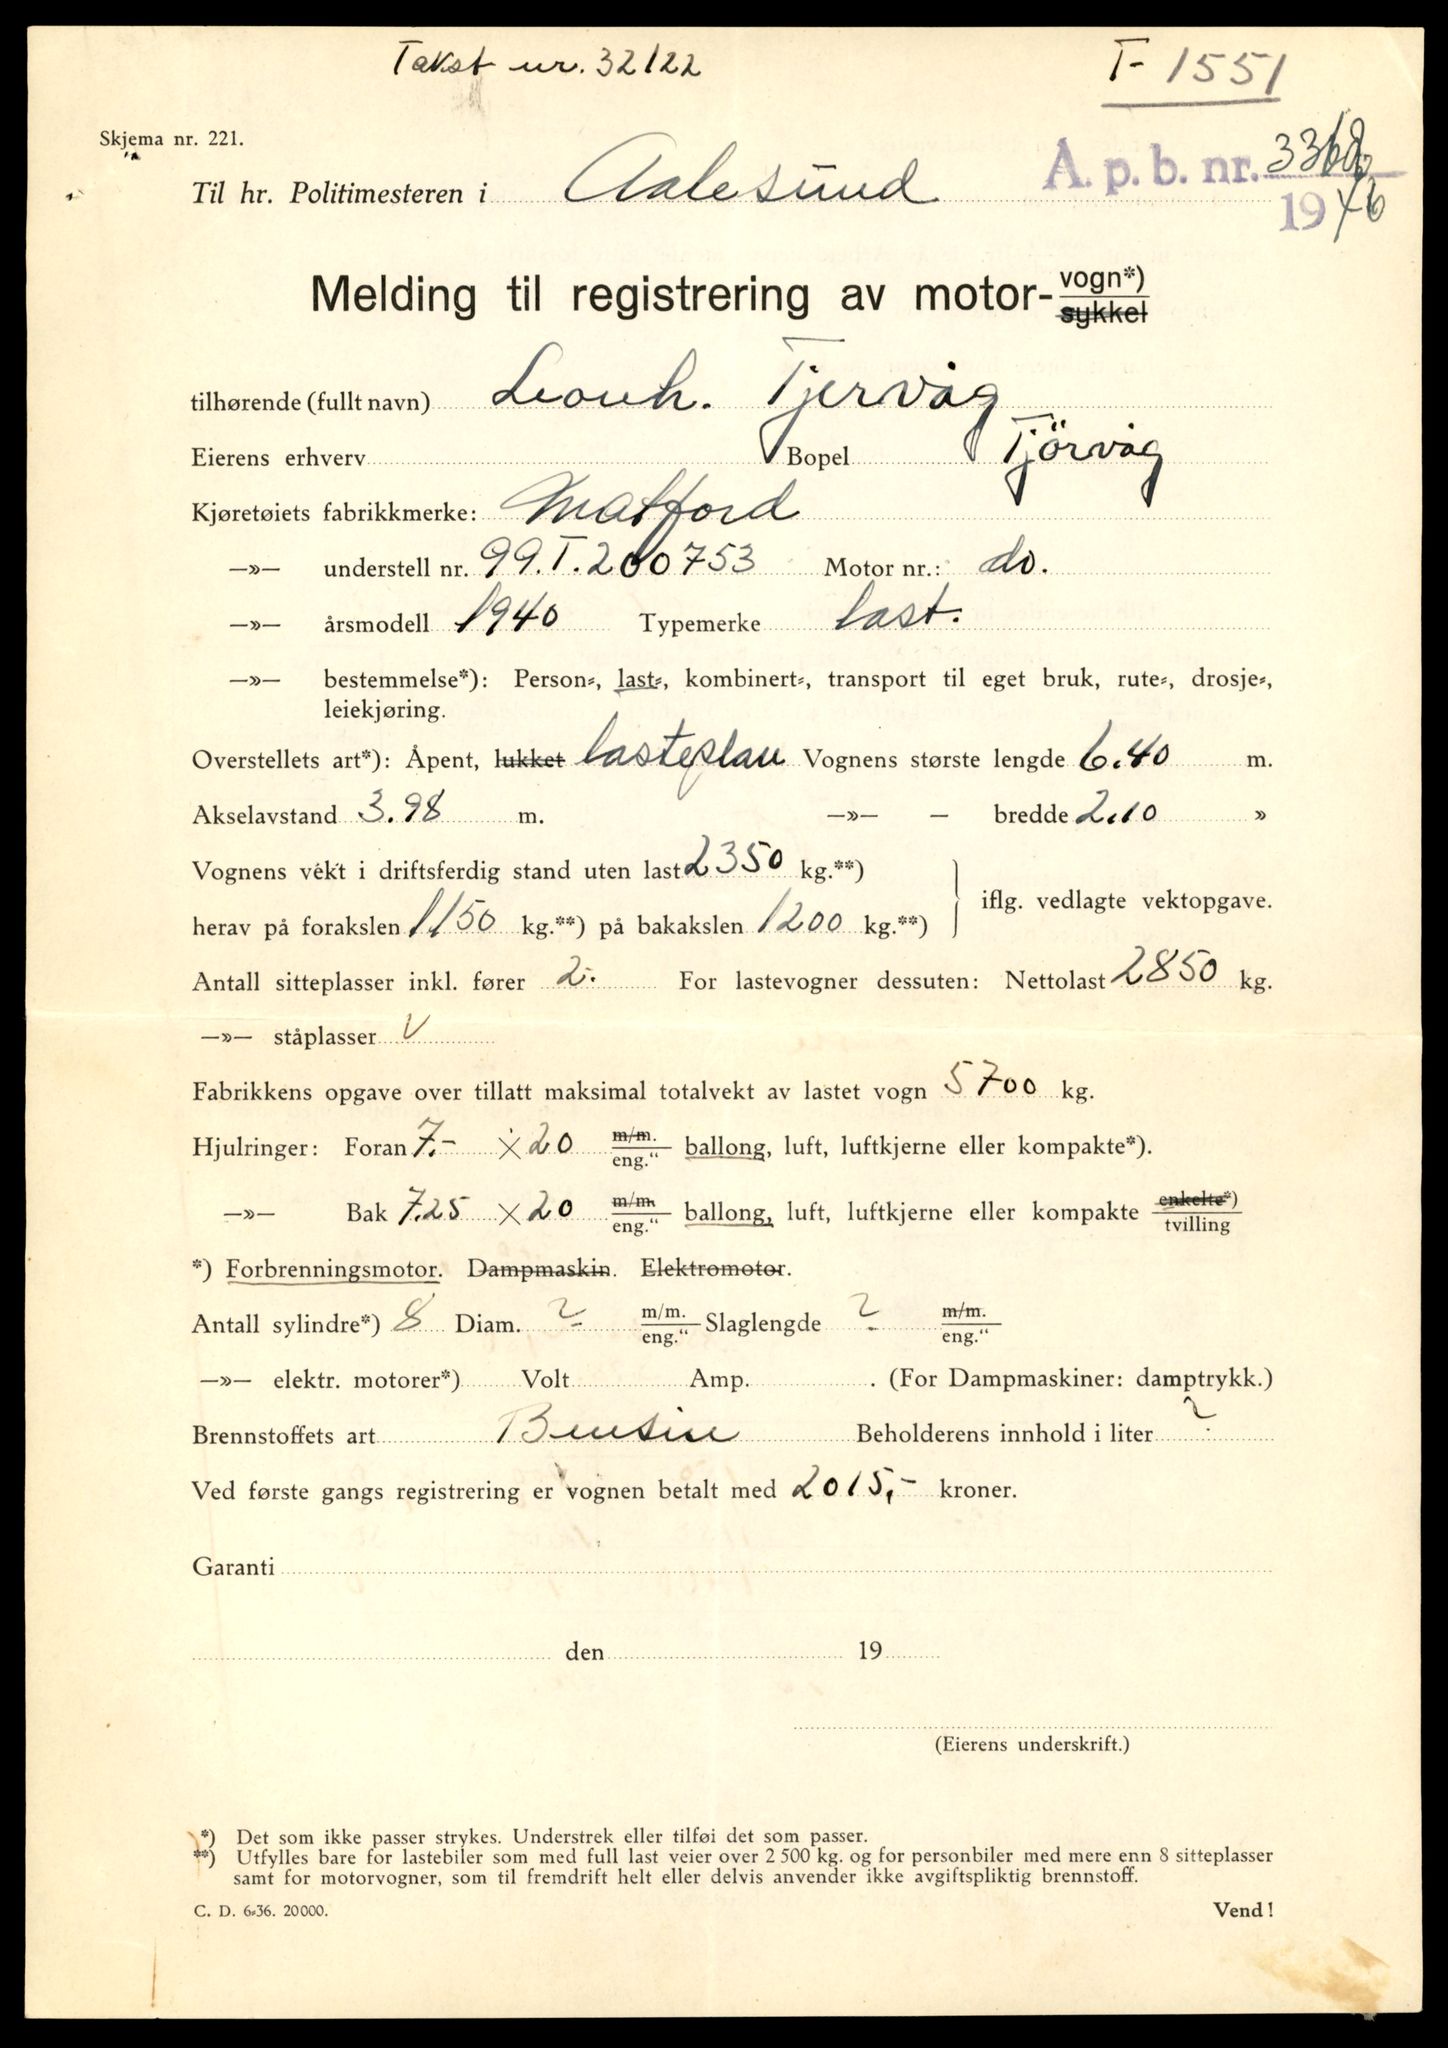 Takst nr. 32122
T- 1551
Skjema nr. 221.
A. p. b. nr.
1946
Til hr. Politimesteren i Aalesund
Melding til registrering av motor-vogn*)
sykkel
tilhørende (fullt navn) Leonh. Tjervåg
Eierens erhverv Bopel Tjörvåg
Kjøretøiets fabrikkmerke: Matford
—»— understell nr. 99.T.200753 Motor nr.: do.
—»— årsmodell 1940 Typemerke last.
—»— bestemmelse*): Person-, last-, kombinert-, transport til eget bruk, rute-, drosje-,
leiekjøring.
Overstellets art*): Åpent, lukket lasteplan Vognens største lengde 6.40 m.
Akselavstand 3.98 m. —»— — bredde 2.10 »
Vognens vekt i driftsferdig stand uten last 2350 kg.**)
herav på forakslen 1150 kg.**) på bakakslen 1200 kg.**)
iflg. vedlagte vektopgave.
Antall sitteplasser inkl. fører 2.- For lastevogner dessuten: Nettolast 2850 kg.
—»— ståplasser V
Fabrikkens opgave over tillatt maksimal totalvekt av lastet vogn 5700 kg.
Hjulringer: Foran 7.- × 20 m/m. eng." ballong, luft, luftkjerne eller kompakte*).
—»— Bak 7.25 × 20 m/m eng." ballong, luft, luftkjerne eller kompakte enkelte*) tvilling
*) Forbrenningsmotor. Dampmaskin. Elektromotor.
Antall sylindre*) 8 Diam. ? m/m. eng." Slaglengde ? m/m. eng."
—»— elektr. motorer*) Volt Amp. . (For Dampmaskiner: damptrykk.)
Brennstoffets art Bensin Beholderens innhold i liter ?
Ved første gangs registrering er vognen betalt med 2015,- kroner.
Garanti
den 19
(Eierens underskrift.)
*) Det som ikke passer strykes. Understrek eller tilføi det som passer.
**) Utfylles bare for lastebiler som med full last veier over 2 500 kg. og for personbiler med mere enn 8 sitteplasser
samt for motorvogner, som til fremdrift helt eller delvis anvender ikke avgiftspliktig brennstoff.
C. D. 6-36. 20000.
Vend!